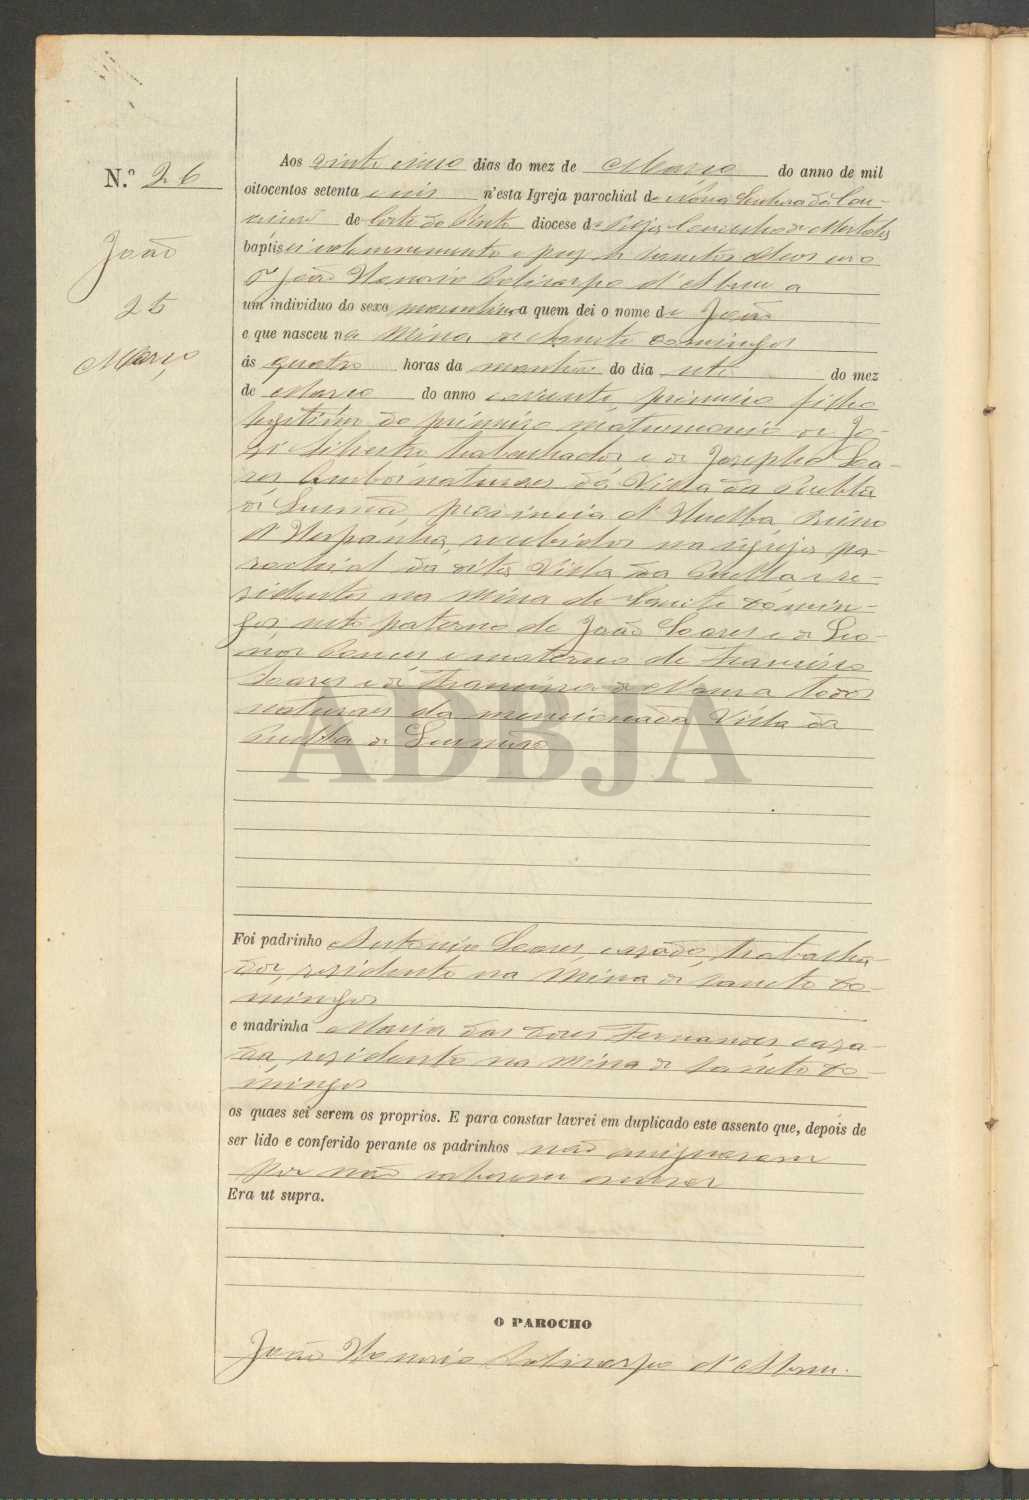 N.º 26
João
25
Março
Aos vinte cinco dias do mez de Março do anno de mil
oitocentos setenta e seis n'esta Igreja parochial de Nossa Senhora da Con-
ceição de Corte do Pinto diocese de Beja Concelho de Mertola
baptisei solemnemente e puz os Sanctos Oleos eu o
P.e João Honorio Policarpo d'Abreu a
um individuo do sexo masculino a quem dei o nome de João
e que nasceu na Mina de Sancto Domingos
ás quatro horas da manhã do dia sete do mez
de Março do anno corrente, primeiro filho
legitimo do primeiro matrimonio de Jo-
sé Silvestre trabalhador e de Josepha Soa-
res ambos naturaes da Villa da Puebla
de Gusmão, provincia d'Huelba, Reino
d'Hespanha, recebidos na igreja pa-
rochial da dita Villa da Puebla e re-
sidentes na Mina de Sancto Domin-
gos neto paterno de João Soares e de Leo-
nor Ponces e materno de Francisco
Soares e de Francisca de Moura todos
naturaes da mencionada Villa da
Puebla de Gusmão
ADBJA
Foi padrinho Antonio Soares, casado, trabalha-
dor, residente na Mina de Sancto Do-
mingos
e madrinha Maria das Dores Fernandes casa-
da, residente na Mina de Sancto Do-
mingos
os quaes sei serem os proprios. E para constar lavrei em duplicado este assento que, depois de
ser lido e conferido perante os padrinhos não assignaram
por não saberem escrever
Era ut supra.
O PAROCHO
João Honorio Policarpo d'Abreu.